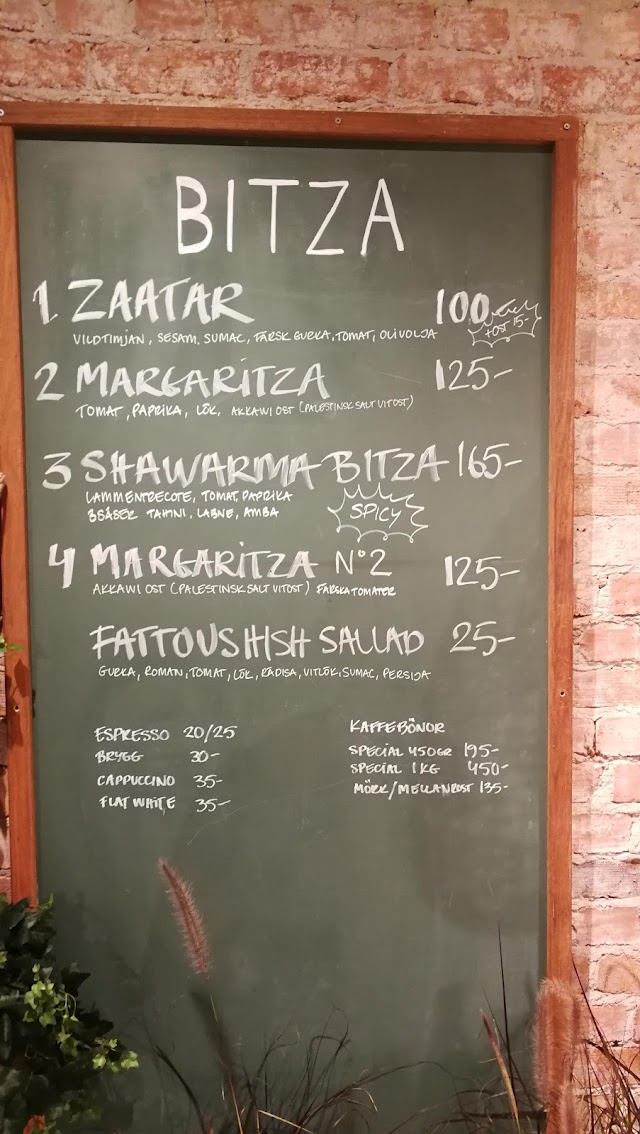 BITZA
1. ZAATAR 100
VILDTIMJAN, SESAM, SUMAC, FÄRSK GURKA, TOMAT, OLIVOLJA
+OST 15-
2 MARGARITZA 125-
TOMAT, PAPRIKA, LÖK, AKKAWI OST (PALESTINSK SALT VITOST)
3 SHAWARMA BITZA 165-
LAMMENTRECOTE, TOMAT, PAPRIKA
3 SÅSER TAHINI, LABNE, AMBA
SPICY
4 MARGARITZA N°2 125-
AKKAWI OST (PALESTINSK SALT VITOST) FÄRSKA TOMATER
FATTOUSHISH SALLAD 25-
GURKA, ROMAN, TOMAT, LÖK, RÄDISA, VITLÖK, SUMAC, PERSIJA
ESPRESSO 20/25
BRYGG 30-
CAPPUCCINO 35-
FLAT WHITE 35-
KAFFEBÖNOR
SPECIAL 450GR 195-
SPECIAL 1 KG 450-
MÖRK/MELLANROST 135-